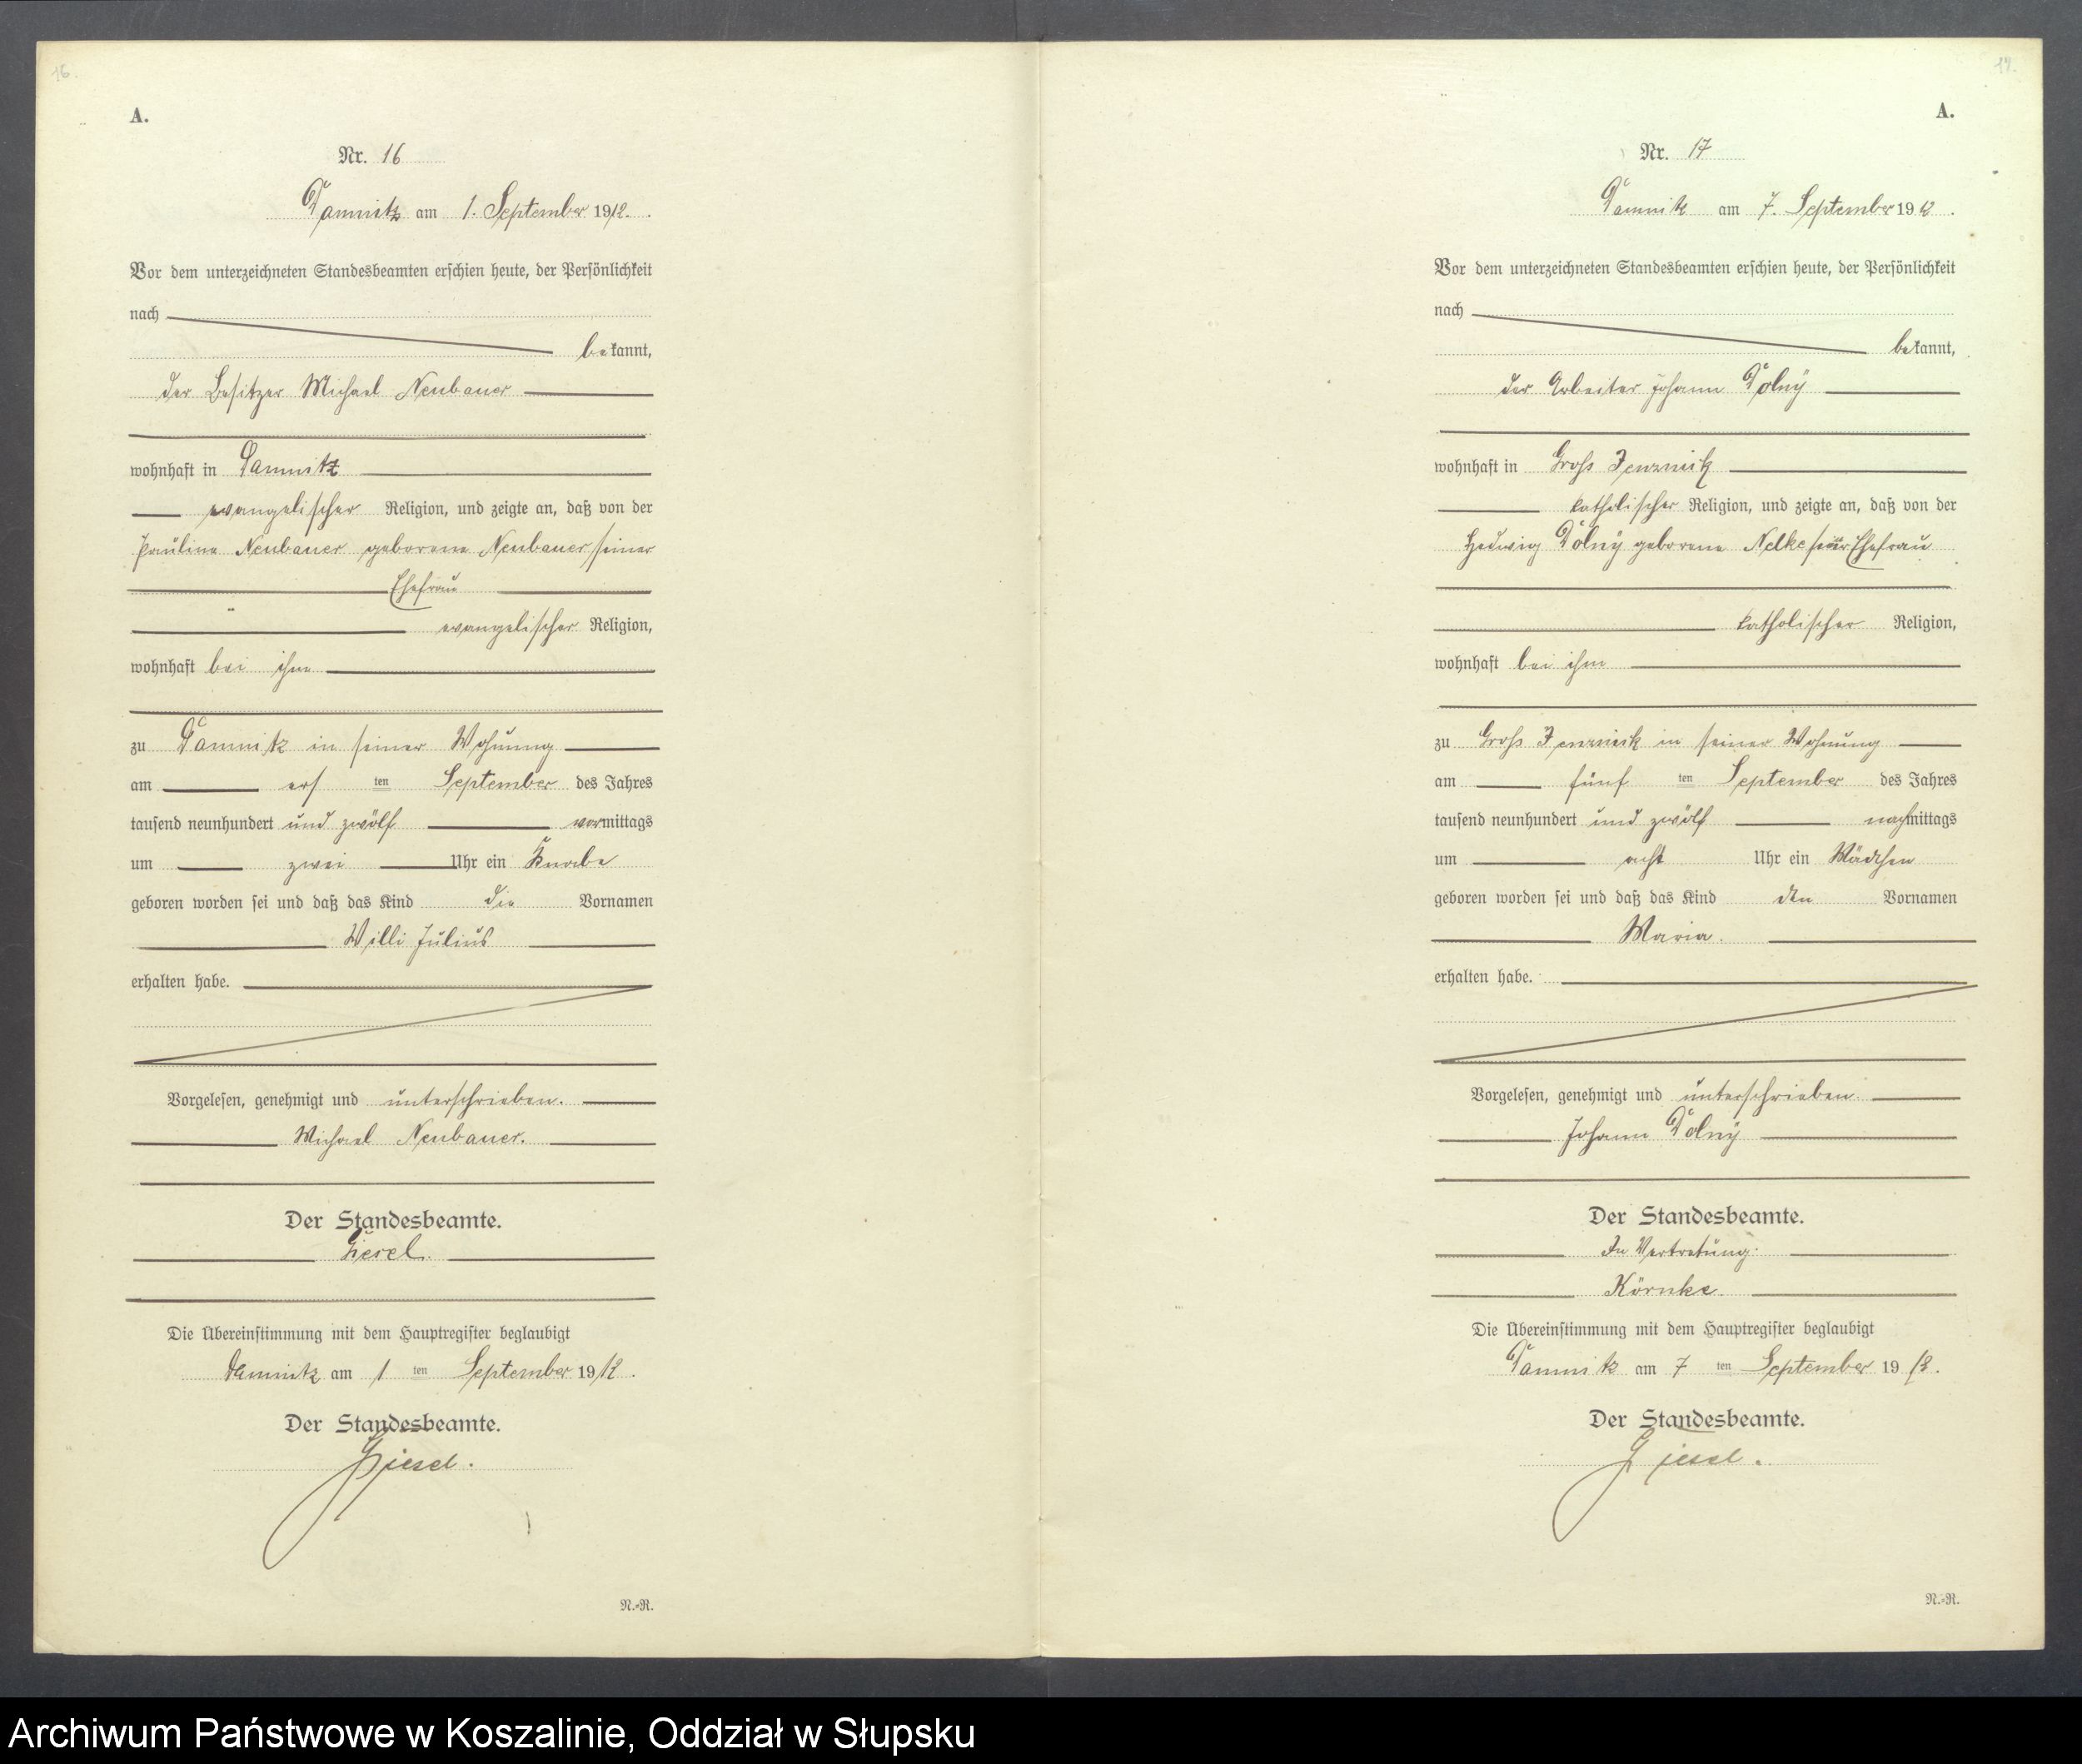 16.
A.
Nr. 16
Damnitz am 1. September 1912.
Vor dem unterzeichneten Standesbeamten erschien heute, der Persönlichkeit
nach
bekannt,
der Besitzer Michael Neubauer
wohnhaft in Damnitz
evangelischer Religion, und zeigte an, daß von der
Pauline Neubauer geborene Neubauer seiner
Ehefrau
evangelischer Religion,
wohnhaft bei ihm
zu Damnitz in seiner Wohnung
am ersten September des Jahres
tausend neunhundert und zwölf vormittags
um zwei Uhr ein Knabe
geboren worden sei und daß das Kind die Vornamen
Willi Julius
erhalten habe.
Vorgelesen, genehmigt und unterschrieben.
Michael Neubauer.
Der Standesbeamte.
Giesel.
Die Übereinstimmung mit dem Hauptregister beglaubigt
Damnitz am 1 ten September 1912.
Der Standesbeamte.
Giesel.
N.=R.
17.
A.
Nr. 17
Damnitz am 7. September 1912.
Vor dem unterzeichneten Standesbeamten erschien heute, der Persönlichkeit
nach
bekannt,
der Arbeiter Johann Dolny
wohnhaft in Gross Jenznick
katholischer Religion, und zeigte an, daß von der
Hedwig Dolny geborene Nelke seiner Ehefrau
katholischer Religion,
wohnhaft bei ihm
zu Gross Jenznick in seiner Wohnung
am fünften September des Jahres
tausend neunhundert und zwölf nachmittags
um acht Uhr ein Mädchen
geboren worden sei und daß das Kind den Vornamen
Maria.
erhalten habe.
Vorgelesen, genehmigt und unterschrieben
Johann Dolny
Der Standesbeamte.
In Vertretung.
Körnke.
Die Übereinstimmung mit dem Hauptregister beglaubigt
Damnitz am 7 ten September 1912.
Der Standesbeamte.
Giesel.
N.=R.
Archiwum Państwowe w Koszalinie, Oddział w Słupsku